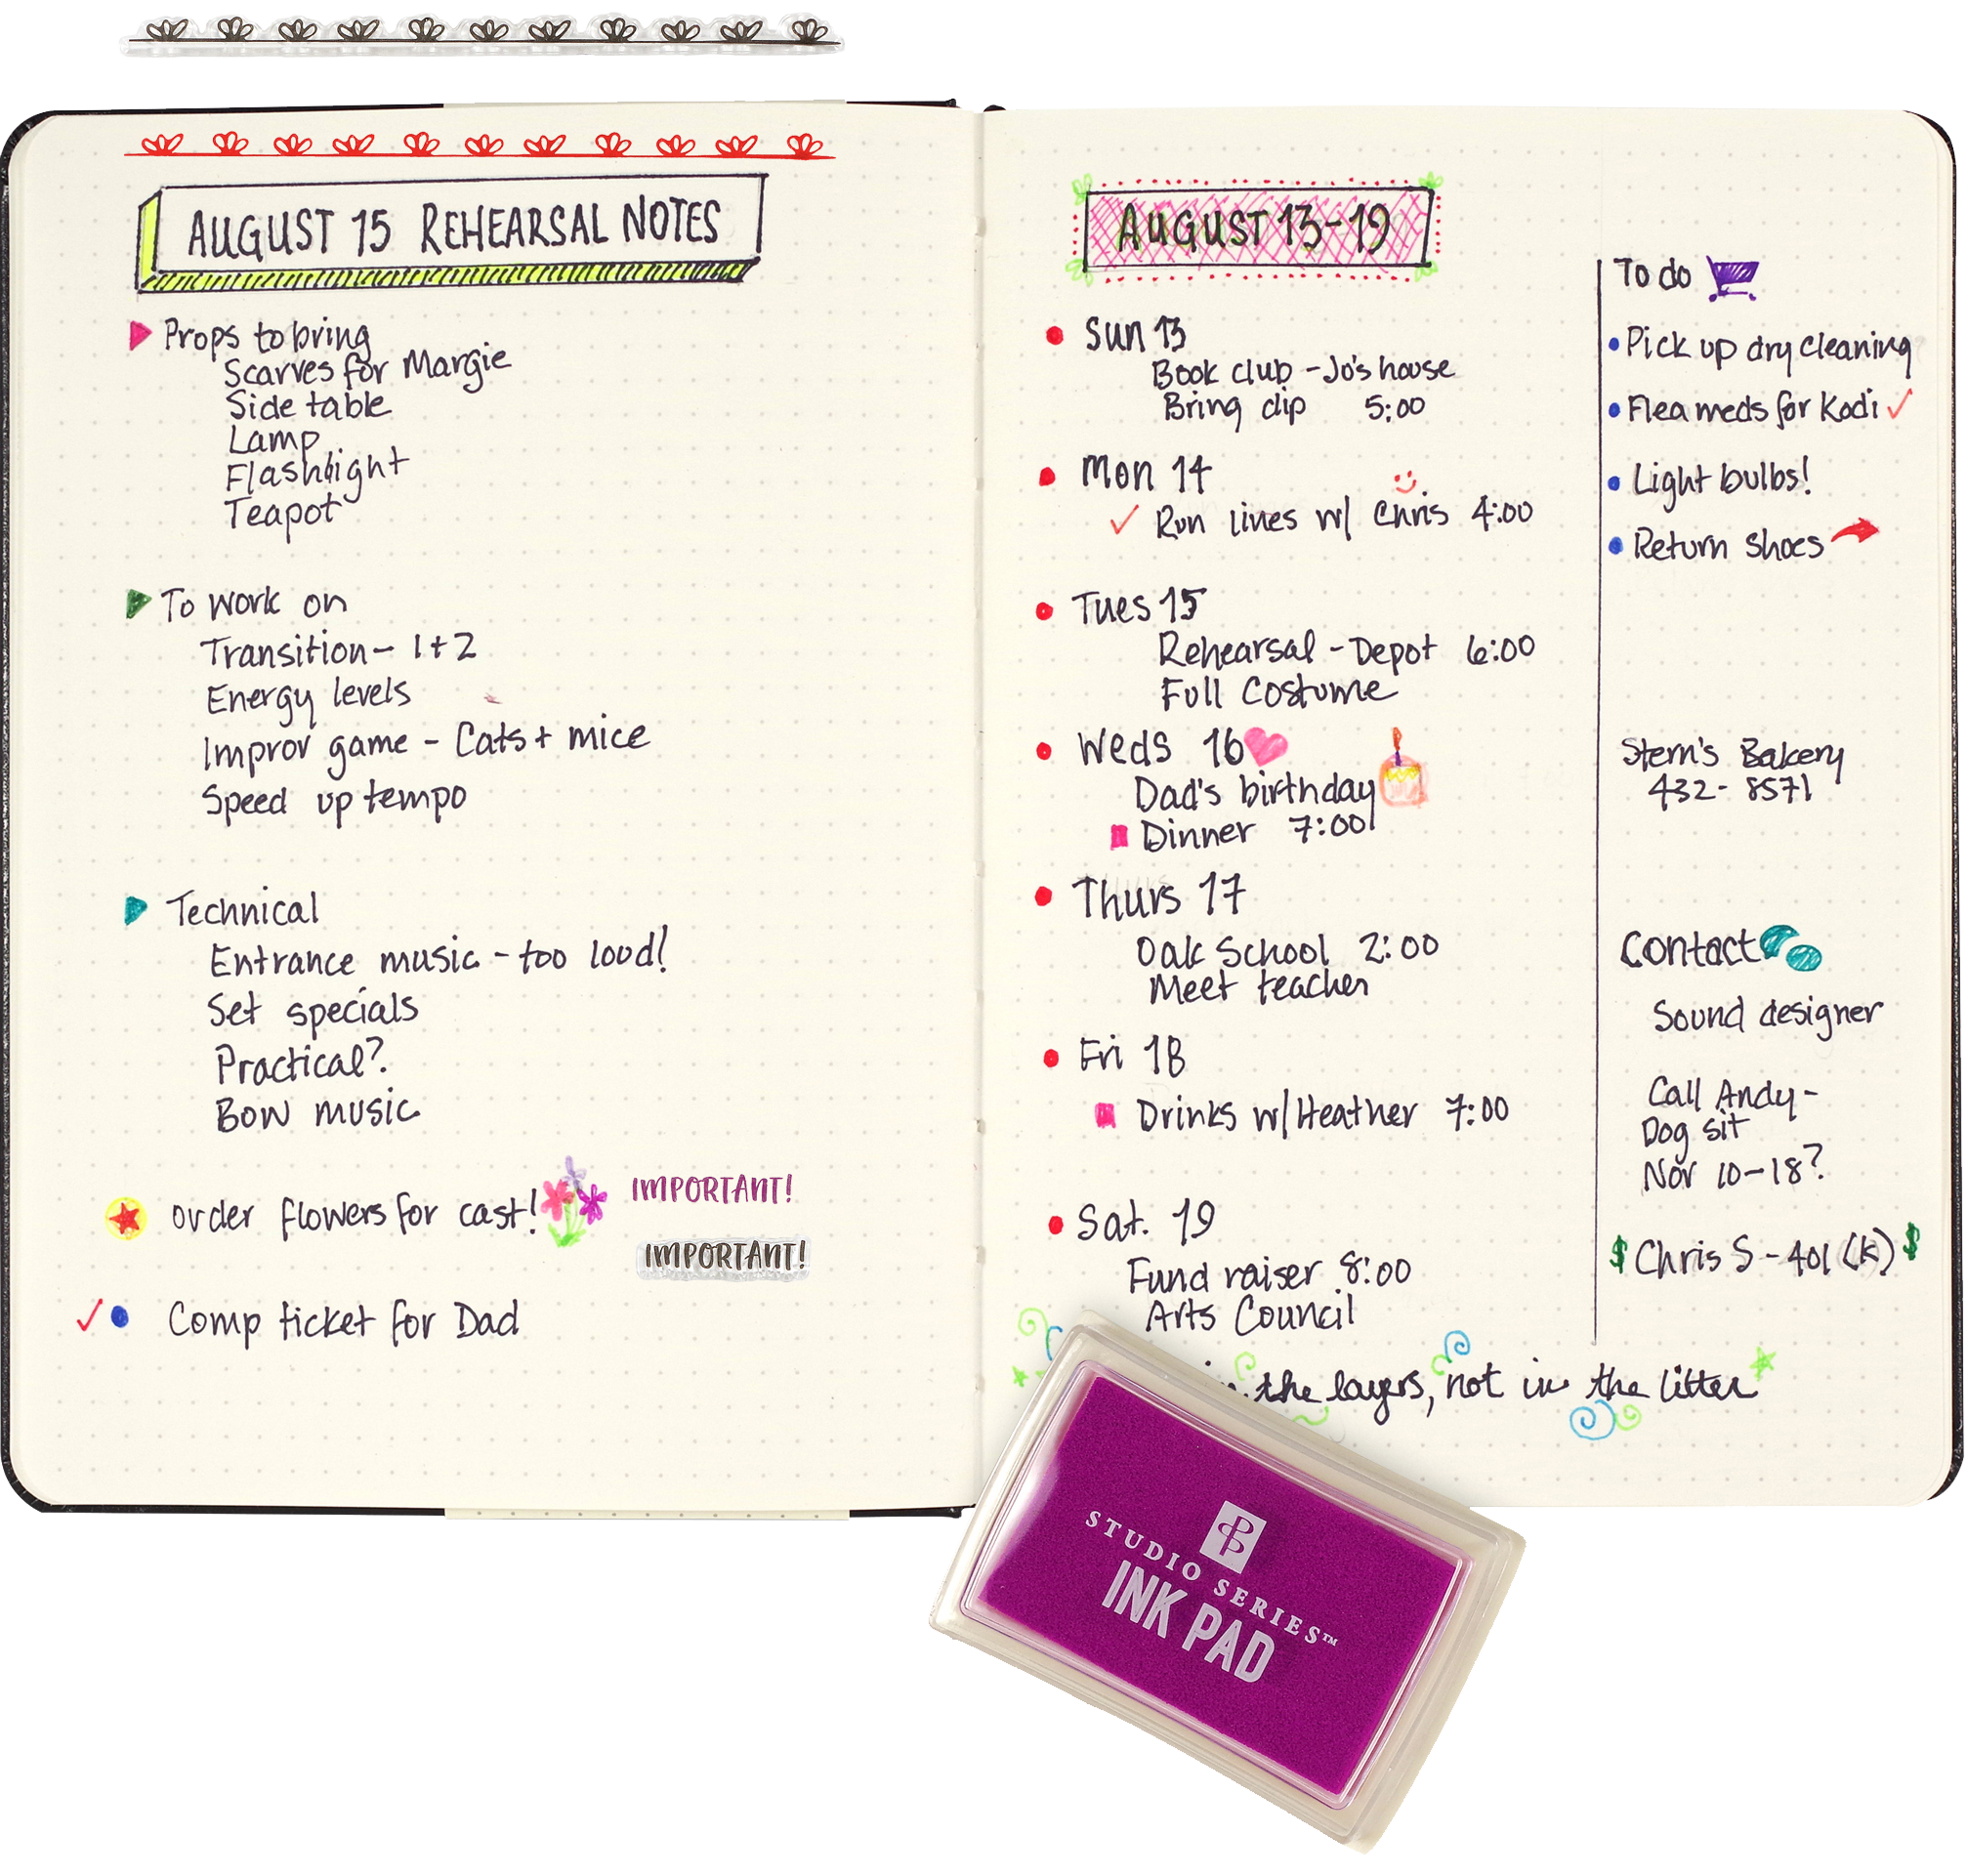 AUGUST 15 REHEARSAL NOTES
Props to bring
Scarves for Margie
Side table
Lamp
Flashlight
Teapot
To work on
Transition - 1+2
Energy levels
Improv game - Cats + mice
Speed up tempo
Technical
Entrance music - too loud!
Set specials
Practical?
Bow music
order flowers for cast!
IMPORTANT!
IMPORTANT!
Comp ticket for Dad
AUGUST 13-19
Sun 13
Book club - Jo's house
Bring dip 5:00
Mon 14
Run lines w/ Chris 4:00
Tues 15
Rehearsal - Depot 6:00
Full Costume
Weds 16
Dad's birthday
Dinner 7:00
Thurs 17
Oak School 2:00
Meet teacher
Fri 18
Drinks w/ Heather 7:00
Sat. 19
Fund raiser 8:00
Arts Council
in the layers, not in the litter
To do
Pick up dry cleaning
Flea meds for Kodi
Light bulbs!
Return shoes
Stern's Bakery
432-8571
Contact
Sound designer
Call Andy -
Dog sit
Nov 10-18?
$ Chris S - 401 (k) $
STUDIO SERIES™
INK PAD